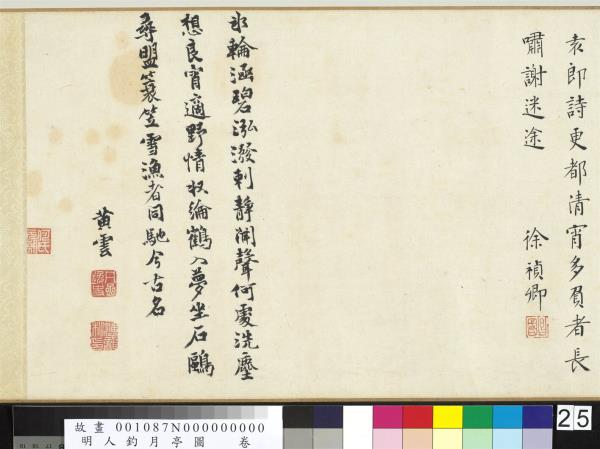 袁郎詩更都清宵多負者長
嘯謝迷途
徐禎卿
冰輪涵碧泓潑剌靜聞聲何處洗塵
想良宵適野情收綸鶴入夢坐石鷗
尋盟簑笠雪漁者同馳今古名
黃雲
故畫 001087N000000000
明人釣月亭圖 卷
25